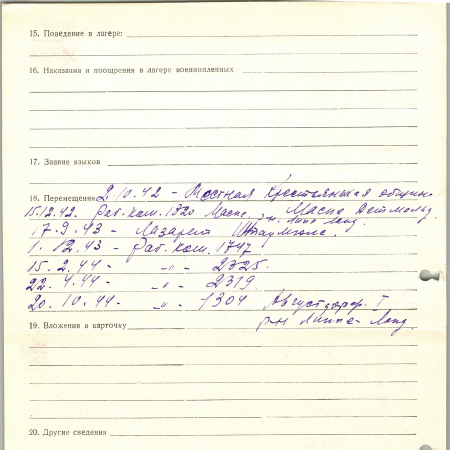 15. Поведение в лагере:
16. Наказания и поощрения в лагере военнопленных
17. Знание языков
18. Перемещения 2.10.42 - Местная Крестьянская общин.
15.12.42. Раб. ком. 1320 Маспе, Маспе Детмольд.
р-н. Липпе Ланд.
17.9.43 - Лазарет Штаумюле.
1.12.43 - Раб. ком. 1747
15.2.44 - -"- 2325.
22.4.44 - -"- 2319.
20.10.44 - -"- 1304 Августдорф. I
р-н Липпе Ланд.
19. Вложения в карточку
20. Другие сведения